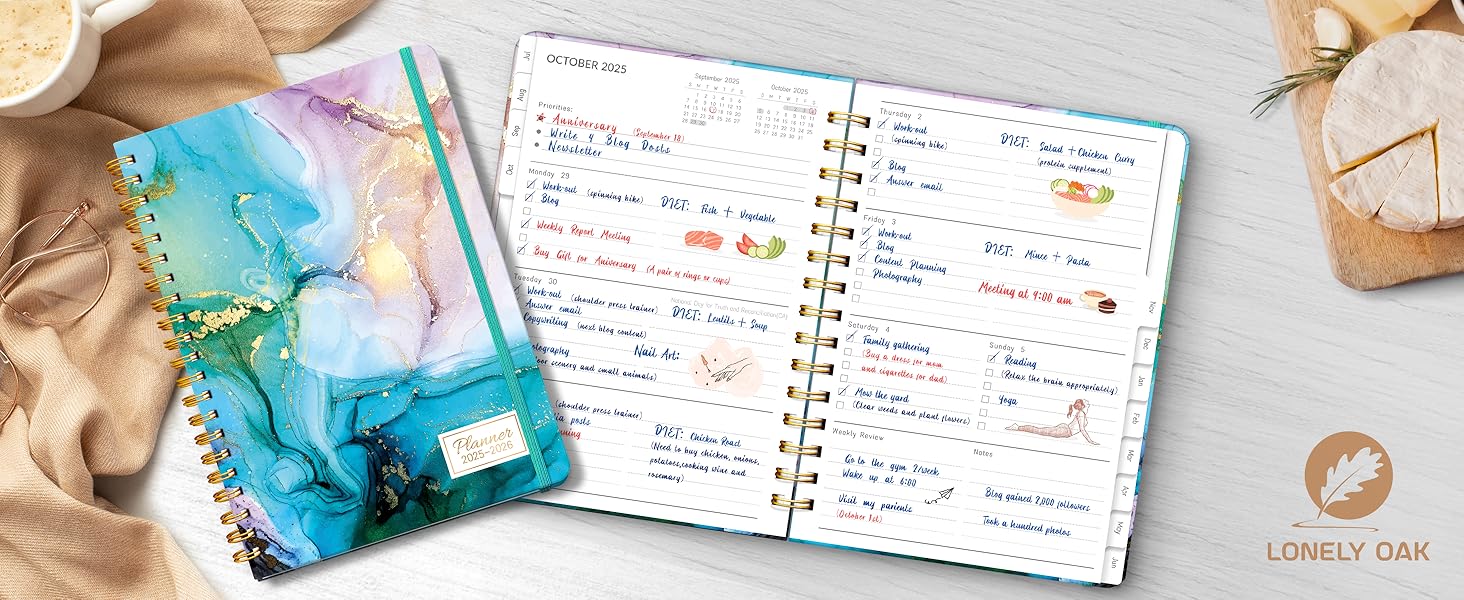 Planner
2025-2026
Jul
Aug
Sep
Oct
OCTOBER 2025
September 2025
October 2025
Priorities:
Anniversary (September 18)
Write 4 Blog Posts
Newsletter
Monday 29
Work-out (spinning bike)
DIET: Fish + Vegetable
Blog
Weekly Report Meeting
Buy Gift for Aniversary (A pair of rings or cups)
Tuesday 30
National Day for Truth and Reconciliation(CA)
Work-out (shoulder press trainer)
DIET: Lentils + Soup
Answer email
Copywriting (next blog content)
Nail Art:
scenery and small animals)
(shoulder press trainer)
posts
DIET: Chicken Roast
(Need to buy chicken, onions,
potatoes,cooking wine and
rosemary)
Thursday 2
Work-out
DIET: Salad + Chicken Curry
(spinning bike)
(protein supplement)
Blog
Answer email
Friday 3
Work-out
DIET: Mince + Pasta
Blog
Content Planning
Photography
Meeting at 9:00 am
Saturday 4
Family gathering
(Buy a dress for mom
and cigarettes for dad)
Mow the yard
(Clear weeds and plant flowers)
Sunday 5
Reading
(Relax the brain appropriately)
Yoga
Weekly Review
Go to the gym 2/week
Wake up at 6:00
Visit my parients
(October 1st)
Notes
Blog gained 2,000 followers
Took a hundred photos
Nov
Dec
Jan
Feb
Mar
Apr
May
Jun
LONELY OAK